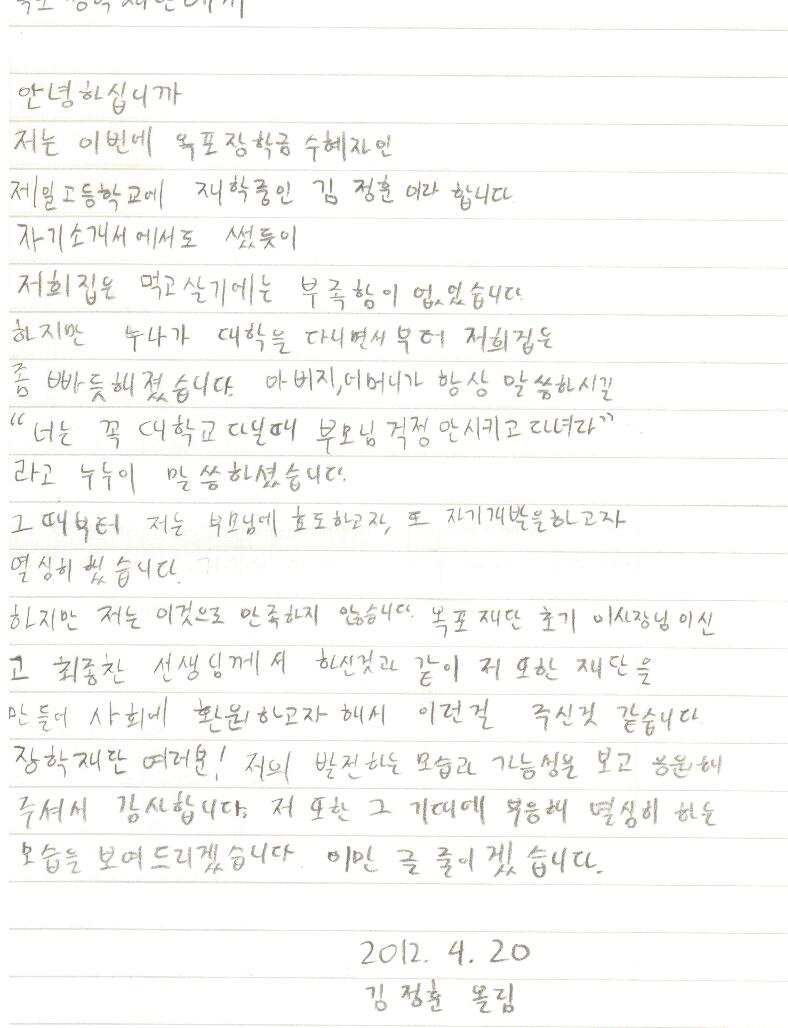 옥포 장학재단에게
안녕하십니까
저는 이번에 옥포장학금 수혜자인
제일고등학교에 재학중인 김 정훈 이라 합니다
자기소개서에서도 썼듯이
저희집은 먹고살기에는 부족함이 없었습니다.
하지만 누나가 대학을 다니면서부터 저희집은
좀 빠듯해졌습니다. 아버지,어머니가 항상 말씀하시길
“너는 꼭 대학교 다닐때 부모님 걱정 안시키고 다녀라”
라고 누누이 말씀하셨습니다.
그때부터 저는 부모님에 효도하고자, 또 자기개발을하고자
열심히 했습니다.
하지만 저는 이것으로 만족하지 않습니다. 옥포재단 초기 이사장님이신
고 최종찬 선생님께서 하신것과 같이 저 또한 재단을
만들어 사회에 환원하고자 해서 이런걸 주신것 같습니다
장학재단 여러분! 저의 발전하는 모습과 가능성을 보고 응원해
주셔서 감사합니다. 저 또한 그 기대에 부응해 열심히 하는
모습을 보여드리겠습니다 이만 글 줄이겠습니다.
2012. 4. 20
김 정훈 올림